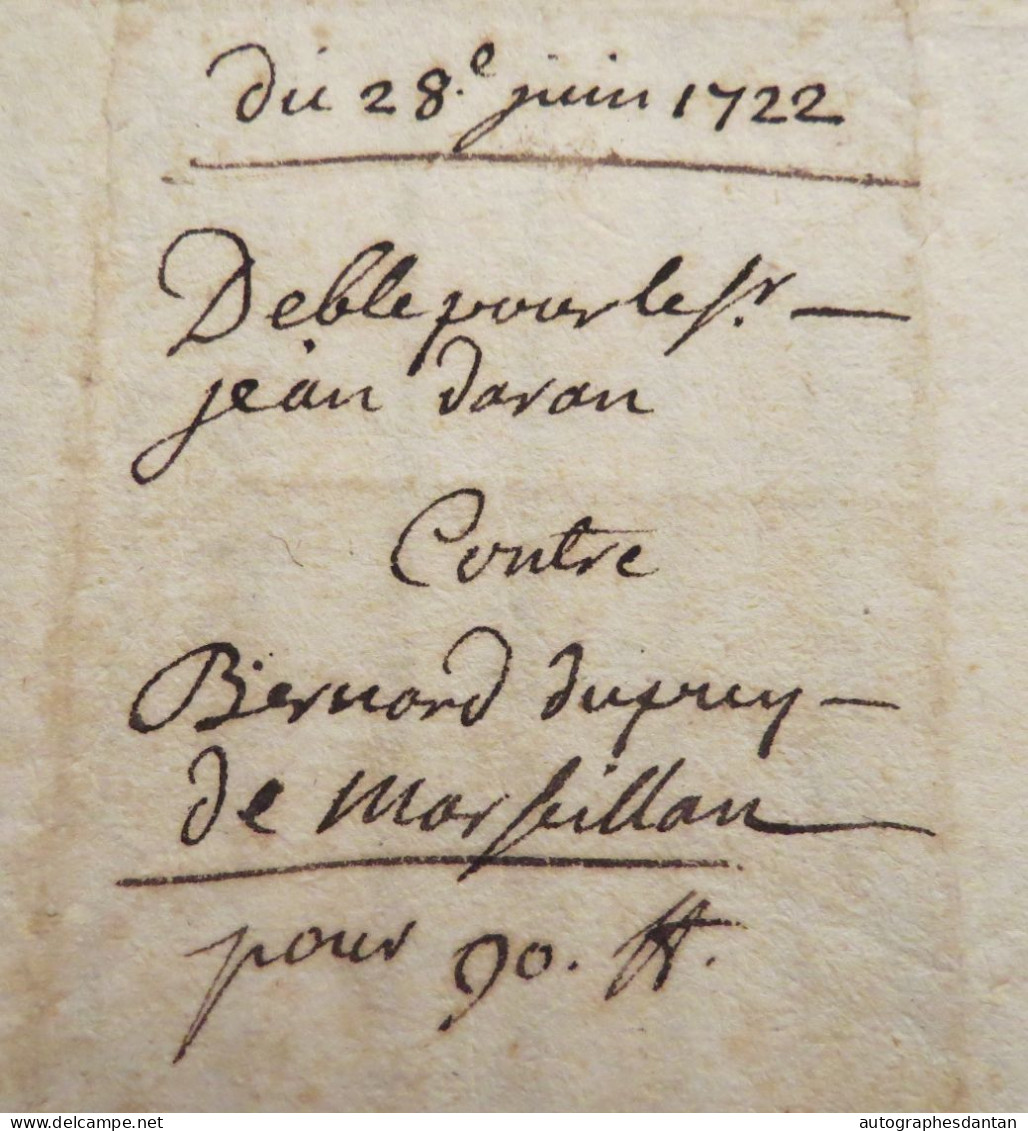 du 28.e juin 1722
Deble pour le sr. —
jean daran
Contre
Bernard dupuy —
de Marseillan
pour 90. ₶.
autographesdantan